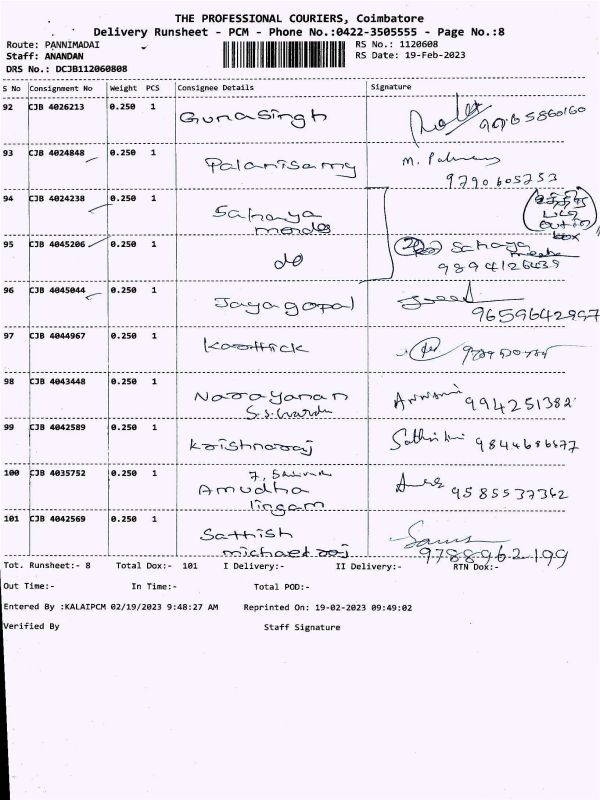 THE PROFESSIONAL COURIERS, Coimbatore
Delivery Runsheet - PCM - Phone No.:0422-3505555 - Page No.:8
Route: PANNIMADAI
RS No.: 1120608
Staff: ANANDAN
RS Date: 19-Feb-2023
DRS No.: DCJB112060808
S No Consignment No Weight PCS Consignee Details Signature
92 CJB 4026213 0.250 1 Gunasingh
93 CJB 4024848 0.250 1 Palanisamy M.
9790605253
94 CJB 4024238 0.250 1 Sahaya
95 CJB 4045206 0.250 1 do Sahaya
9894126439
96 CJB 4045044 0.250 1 Jayagopal
9659642997
97 CJB 4044967 0.250 1 Karthick
98 CJB 4043448 0.250 1 Narayanan 994251382
S.S.
99 CJB 4042589 0.250 1 Krishnaraj 9844686877
7,
100 CJB 4035752 0.250 1 Amudha 9585537362
lingam
101 CJB 4042569 0.250 1 Sathish
michael raj 9788962199
Tot. Runsheet:- 8 Total Dox:- 101 I Delivery:- II Delivery:- RTN Dox:-
Out Time:- In Time:- Total POD:-
Entered By :KALAIPCM 02/19/2023 9:48:27 AM Reprinted On: 19-02-2023 09:49:02
Verified By Staff Signature